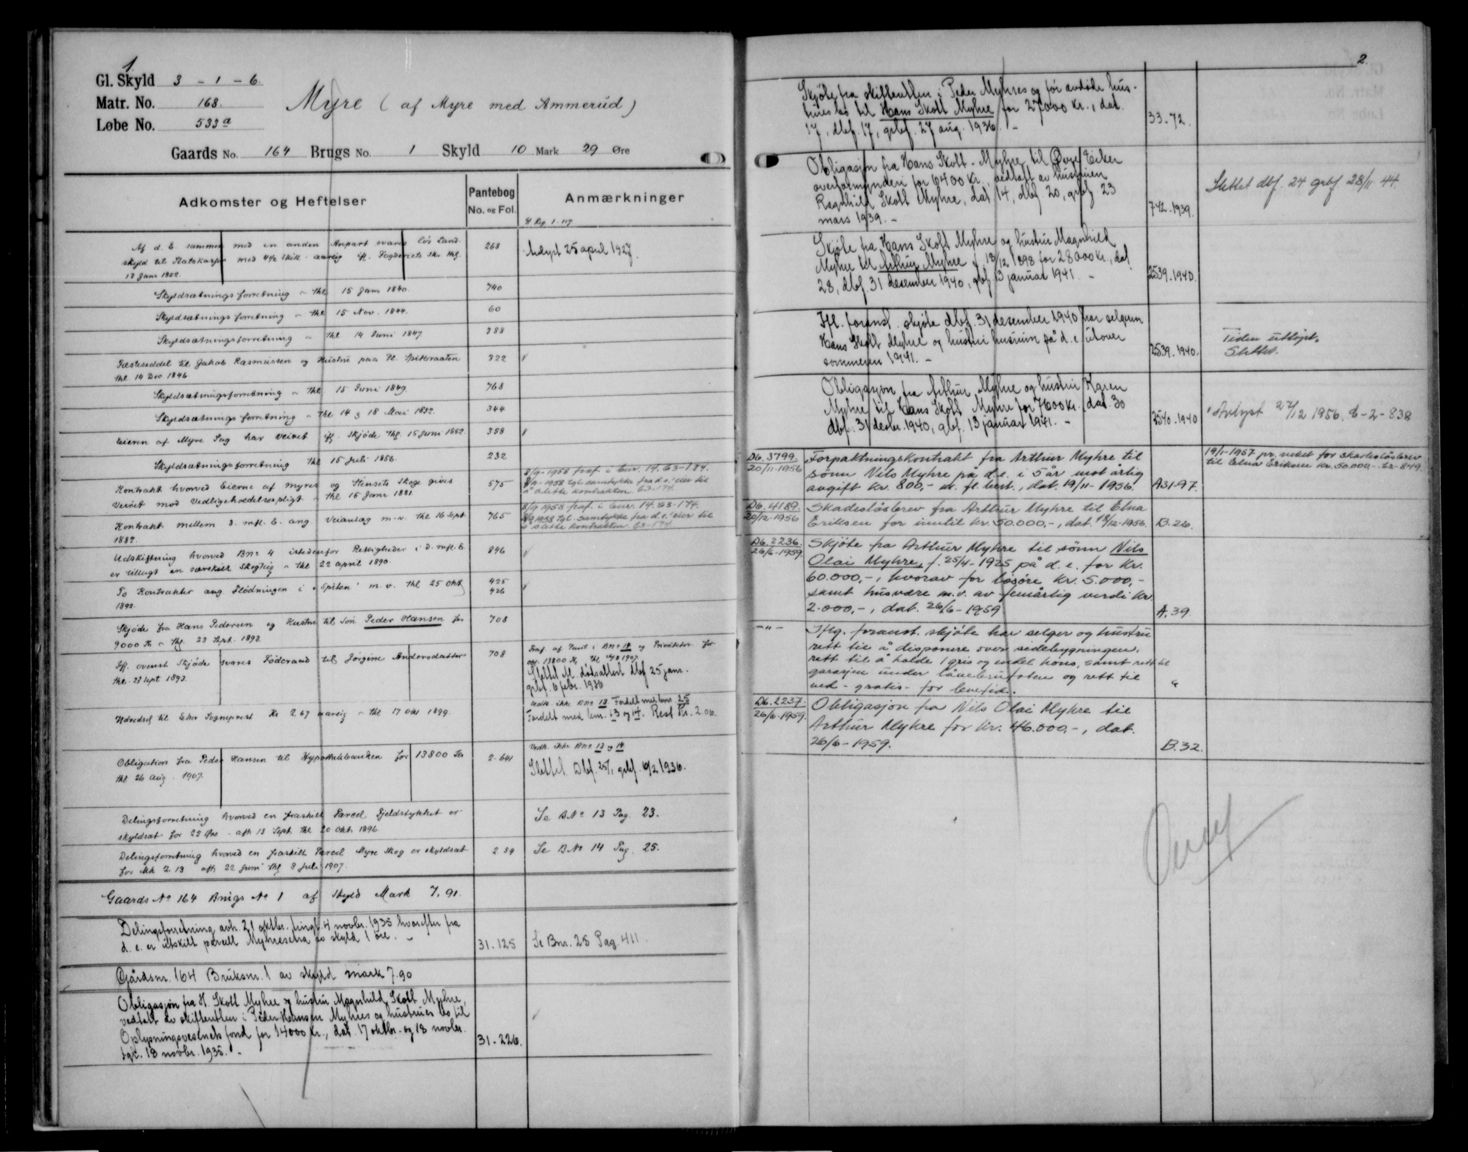 1
Gl. Skyld 3 - 1 - 6.
Matr. No. 168.
Løbe No. 533a
Myre (af Myre med Ammerud)
Gaards No. 164 Brugs No. 1 Skyld 10 Mark 29 Øre
Adkomster og Heftelser
Pantebog
No. og Fol.
Anmærkninger
Af d. E. sammen med en anden Anpart svares
268
Avlyst 25 april 1927.
Skyldsætningsforretning - thl 15 Juni 1840.
740
Skyldsætningsforretning - thl 15 Nov. 1844.
60
Skyldsætningsforretning - thl 14 Juni 1847
388
Fæsteseddel til Jakob Rasmussen og Hustru paa Pl.
thl 14 Dec 1846
322
Skyldsætningsforretning - thl 15 Juni 1849
768
Skyldsætnings forretning - thl 14 & 18 Mai 1852.
344
Eieren af Myre Sag har Veiret iflg. Skjøde thl. 15 Juni 1852
358
Skyldsætningsforretning thl 15 Juli 1856.
232
Kontrakt hvorved Eierne af Myres og Stensets Skoge gives
Veiret mod Vedligeholdelsespligt - thl 15 Janr 1881
575
Kontrakt mellem d. mfl. E. ang Veianlæg m.v. thl 16 Sept
1889.
765
Udskiftning hvorved Bno 4 istedenfor Rettigheder i d. mfl. E.
er tillagt en særskilt Skogteig - thl 22 april 1890.
896
To Kontrakter ang Flødningen i m. v. thl 25 Okt
1892.
425
426
Skjøde fra Hans Pedersen og Hustru til Søn Peder Hansen for
9000 Kr - thl. 23 Sept. 1893.
708
Iflg. ovenst Skjøde svares Føderaad til Jørgine Andersdatter
thl. 23 Sept 1893.
708
Slettet M. dødsattest dbf 25 janr.
grbf. 6 febr. 1936
Fordelt med bnr. 13 og 14. Rest kr. 2.06.
Obligation fra Peder Hansen til Hypothekbanken for 13800 Kr
thl 26 Aug. 1907.
2. 641
Vedk. ikke BNo 13 og 14
Slettet. Dbf. 25/1, grbf. 6/2 1936.
Delingsforretning hvorved en fraskilt Parcel Fjeldstykket er
skyldsat for 22 Øre - afh 13 Sept. thl 20 Okt. 1896
Se BNo 13 Pag. 23.
Delingsforretning hvorved en fraskilt Parcel Myre Skog er skyldsat
for Mk 2.13 afh 22 Juni thl 8 Juli 1907.
2 39
Se BNo 14 Pag. 25.
Gaards No 164 Brugs No 1 af Skyld Mark 7.91.
Delingsforretning, avh. 21 oktbr., tingl. 4 novbr. 1935 hvorefter fra
d. e. er utskilt parcell Myhresetra av skyld 1 øre. -
31. 125
Se Bnr. 25 Pag. 411.
Gårdsnr. 164 Bruksnr. 1 av skyld mark 7.90
Obligasjon fra H. Skolt Myhre og hustru Magnhild Skolt Myhre,
vedtatt av skifteretten i Peder Hansen Myhres og hustrues bo til
Oplysningsvesenets fond for 14000 kr., dat. 17 oktbr. og 13 novbr.
tgl. 18 novbr. 1935. -
31. 226.
2
Skjøte fra skifteretten i Peder Myhres og før avdøde hus-
trues bo til Hans Skolt Myhre for 27000 kr., dat.
17, dbf. 17, grbf. 27 aug. 1936. -
33. 72.
Obligasjon fra Hans Skolt-Myhre til Øvre Eiker
overformynderi for 6400 kr. vedtatt av hustruen
Ragnhild Skolt Myhre, dat. 14, dbf 20, grbf 23
mars 1939. -
742. 1939.
Slettet dbf. 24 grbf. 28/11. 44.
Skjøte fra Hans Skolt Myhre og hustru Magnhild
Myhre til Arthur Myhre f. 13/12 1898 for 28000 kr., dat.
28, dbf 31 desember 1940, grbf 13 januar 1941. -
2539. 1940.
Ifl. foranst. skjøte dbf. 31 desember 1940 har selgeren
Hans Skolt Myhre og hustru husrum på d. e. utover
sommeren 1941. -
2539. 1940.
Tiden utløpt.
Slettet.
Obligasjon fra Arthur Myhre og hustru Karen
Myhre til Hans Skolt Myhre for 7600 kr. dat 30
dbf. 31 desbr. 1940, grbf. 13 januar 1941. -
2540. 1940
Avlyst 27/12 1956. 6-2-838
Db. 3799.
20/11-1956
Forpaktningskontrakt fra Arthur Myhre til
sønn Nils Myhre på d.e. i 5 år mot årlig
avgift kr. 800,- m. fl. best., dat. 19/11-1956.
A31-97.
19/1-1957 pr. veket for skadesløsbrev
til Elna Eriksen kr. 50.000.-
Db. 4189.
20/12-1956
Skadesløsbrev fra Arthur Myhre til Elna
Eriksen for inntil kr. 50.000.-, dat. 19/12-1956.
B. 26.
Db. 2236.
26/6-1959
Skjøte fra Arthur Myhre til sønn Nils
Olai Myhre, f. 25/4-1925 på d. e. for kr.
60.000,-, hvorav for løsøre kr. 5.000,-
samt husvære m.v. av femårlig verdi kr.
2.000,-, dat. 26/6-1959.
A. 39.
-"-
Iflg. foranst. skjøte har selger og hustru
rett til å disponere over sidebygningen,
rett til å holde 1 gris og endel høns, samt rett til
garasjen under låvebrufoten og rett til
ved - gratis - for levetid.
"
Db. 2237.
26/6-1959.
Obligasjon fra Nils Olai Myhre til
Arthur Myhre for kr. 46.000.-, dat.
26/6-1959.
B. 32.